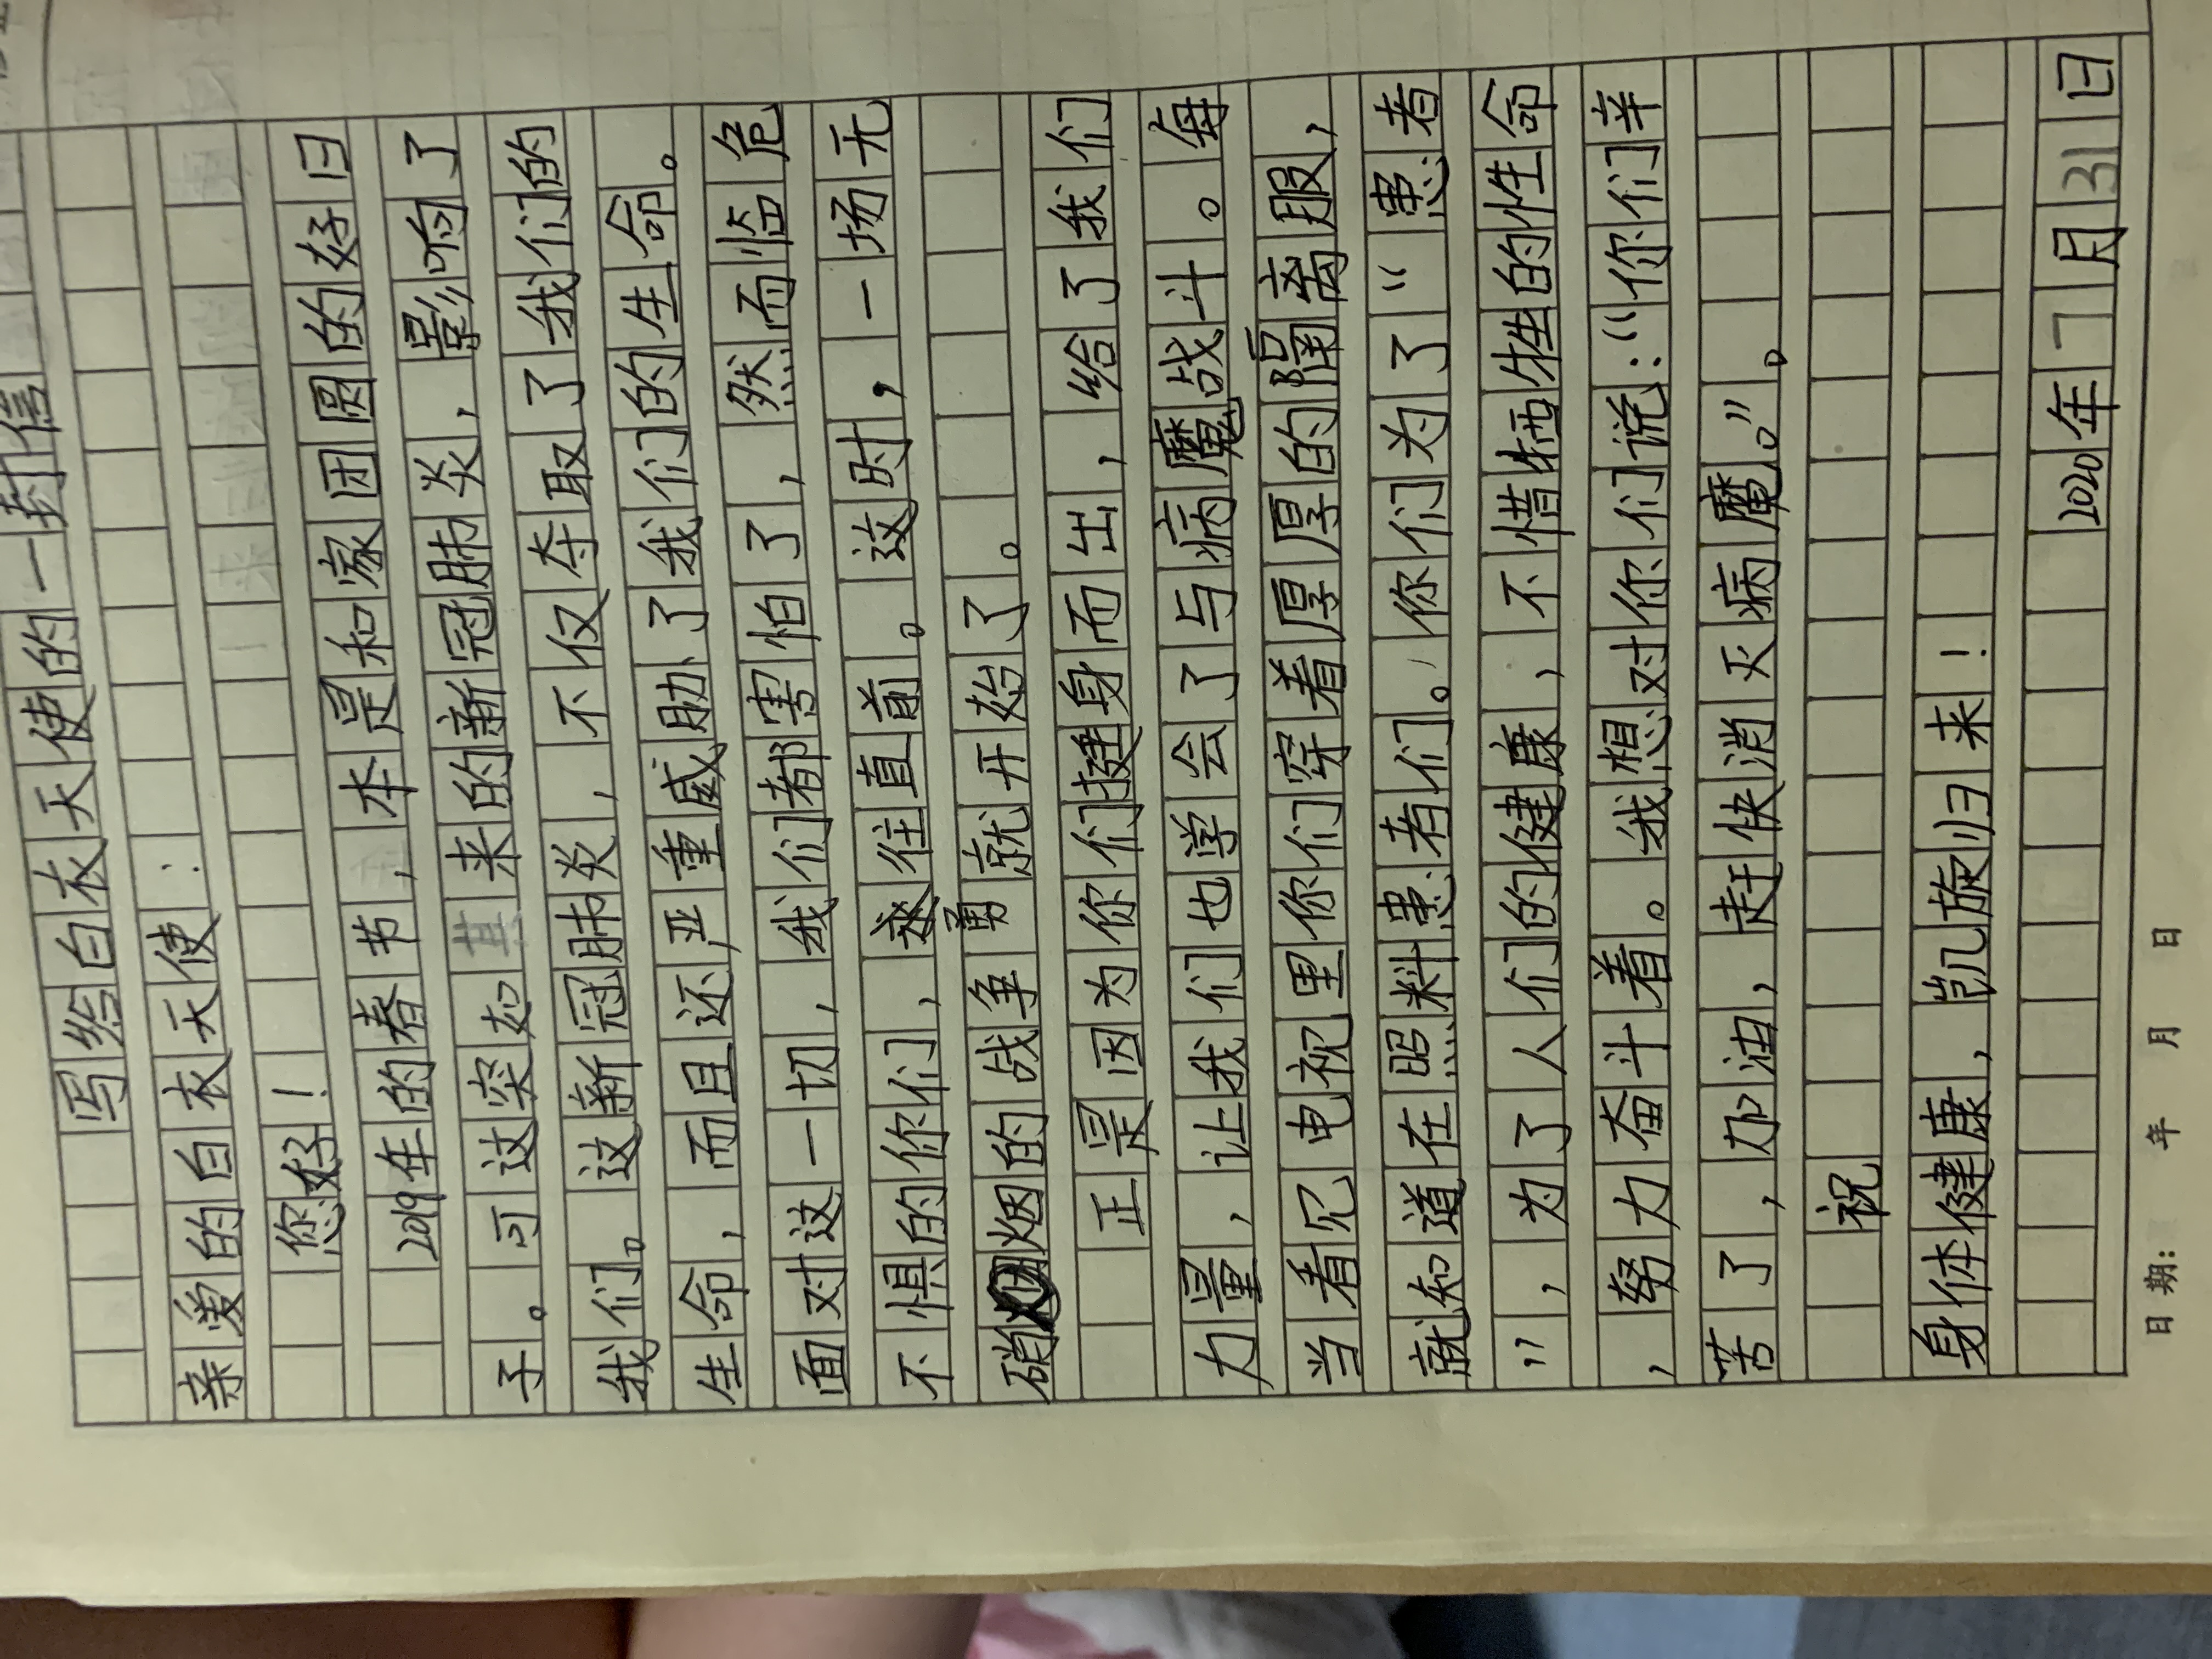 写给白衣天使的一封信
亲爱的白衣天使：
您好！
2019年的春节，本是和家人团圆的好日
子。可这突如其来的新冠肺炎，影响了
我们。这新冠肺炎，不仅夺取了我们的
生命，而且还严重威胁了我们的生命。
面对这一切，我们都害怕了，然而临危
不惧的你们，勇往直前。这时，一场无
硝烟的战争就开始了。
正是因为你们挺身而出，给了我们
力量，让我们也学会了与病魔战斗。每
当看见电视里你们穿着厚厚的隔离服，
就知道在照料患者们。你们为了“患者
”，为了人们的健康，不惜牺牲的性命
，努力奋斗着。我想对你们说：“你们辛
苦了，加油，赶快消灭病魔。”。
祝
身体健康，凯旋归来！
2020年7月31日
日期： 年 月 日